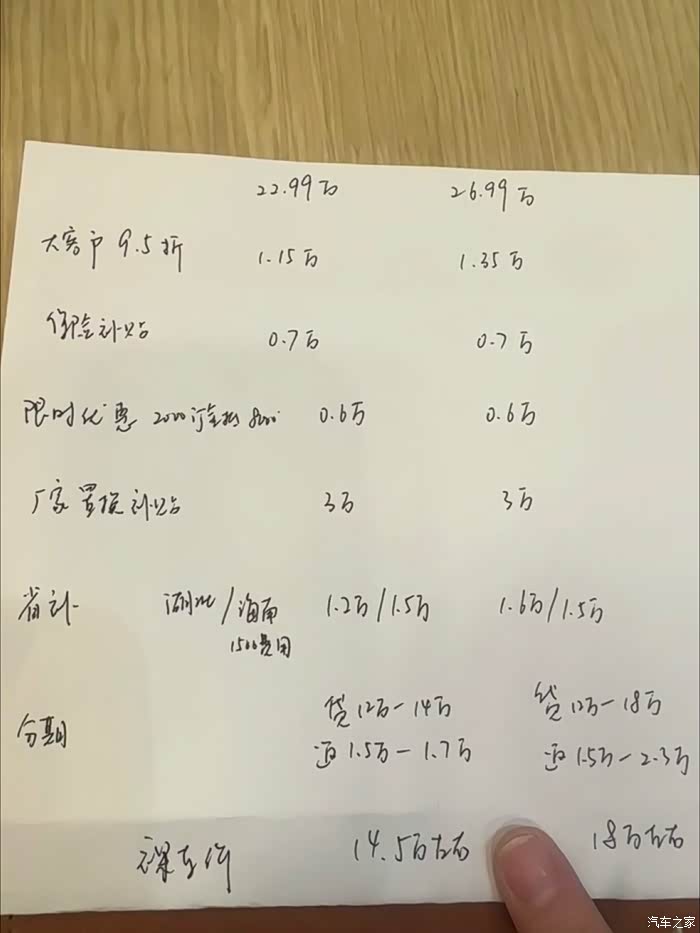 22.99万 26.99万
大客户 9.5折 1.15万 1.35万
保险补贴 0.7万 0.7万
限时优惠 2000订金抵8000 0.6万 0.6万
厂家置换补贴 3万 3万
省补 湖北/海南 1.2万/1.5万 1.6万/1.5万
1500费用
分期 贷12万-14万 贷12万-18万
返1.5万-1.7万 返1.5万-2.3万
裸车价 14.5万左右 18万左右
汽车之家